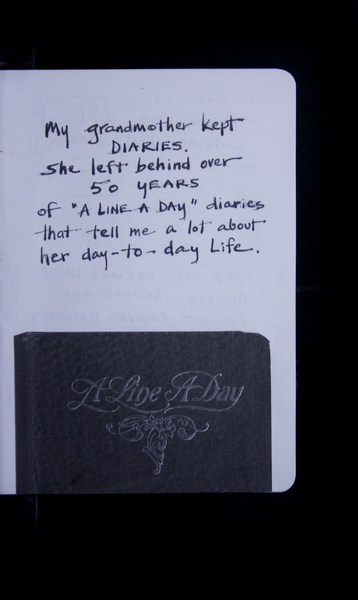 My grandmother kept
DIARIES.
She left behind over
50 YEARS
of "A LINE A DAY" diaries
that tell me a lot about
her day-to-day Life.
A Line A Day